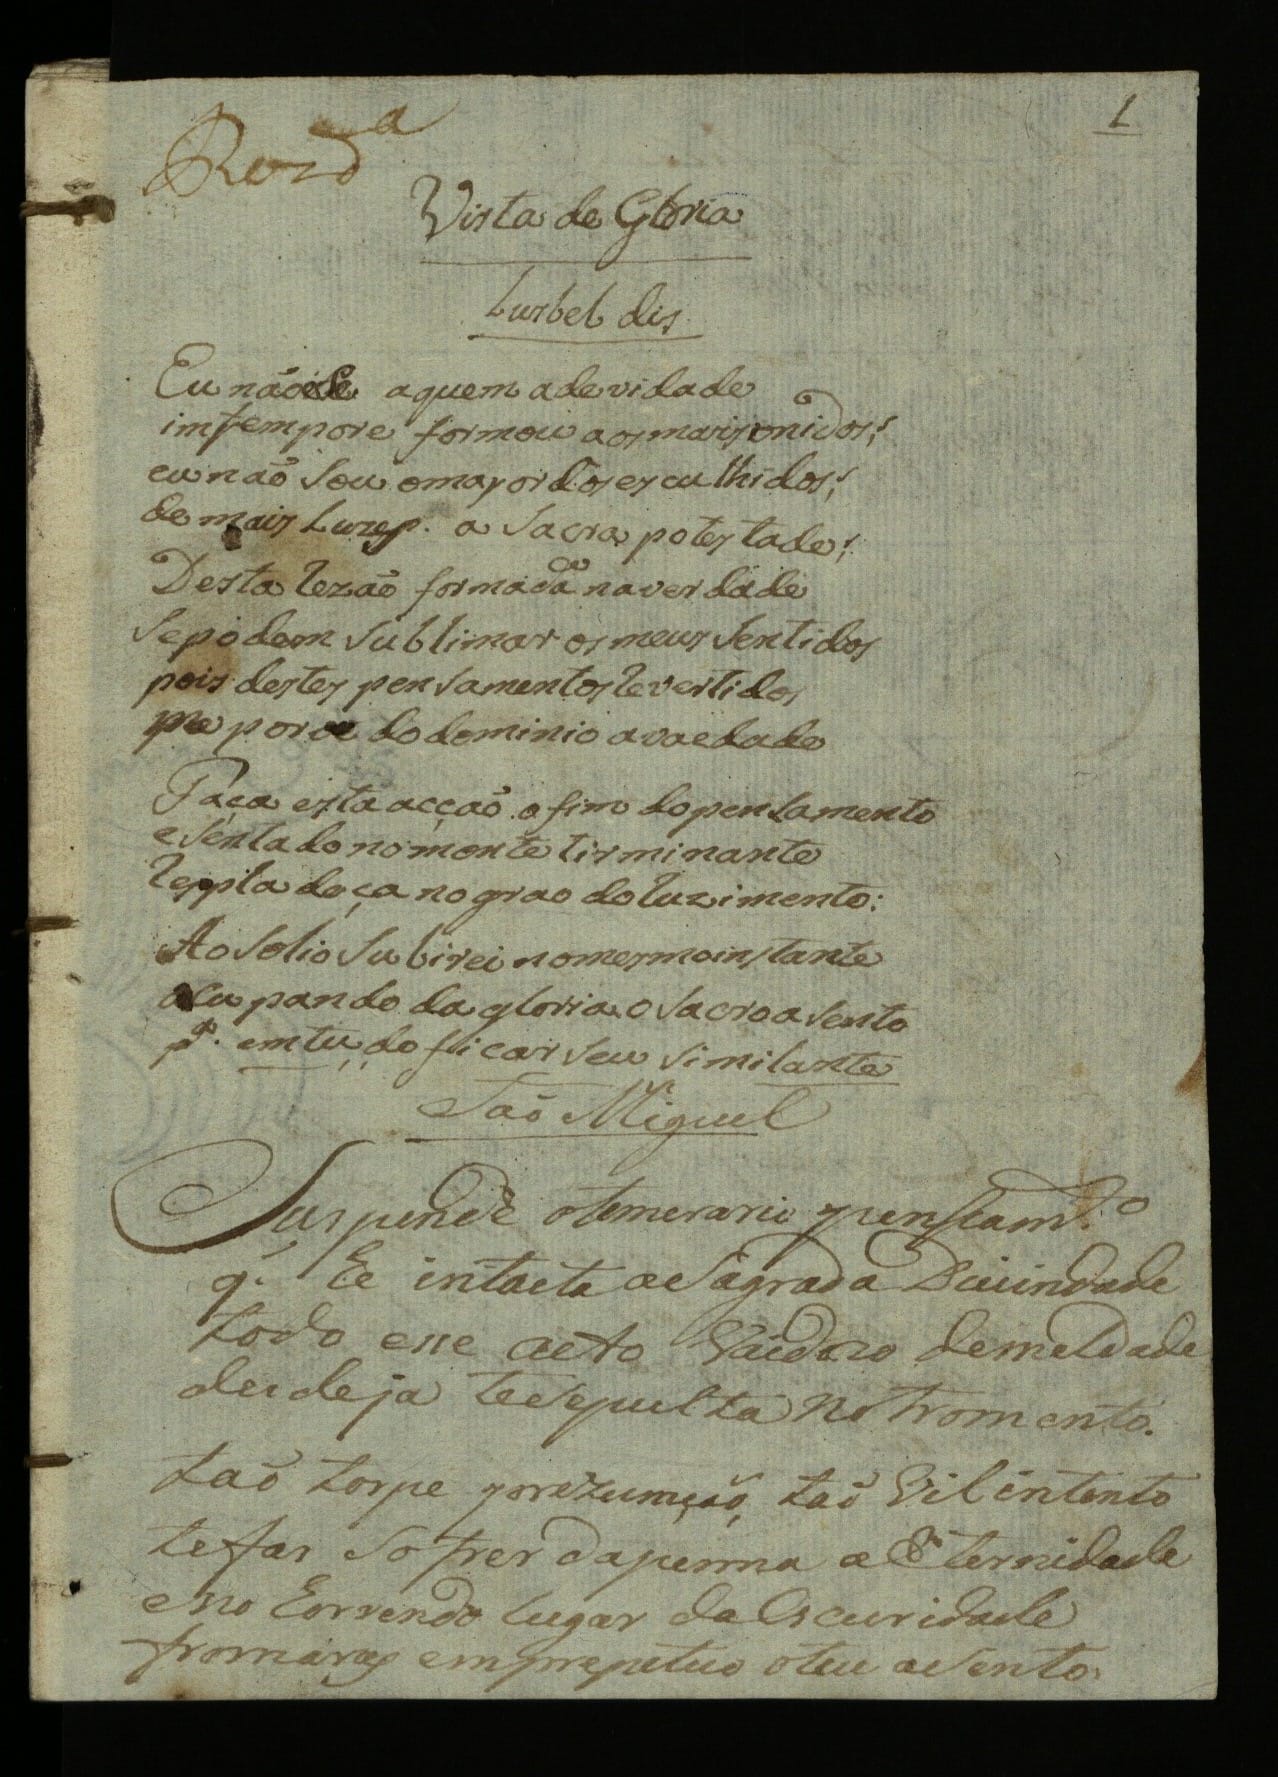 1
Vista de Gloria
Lusbel dis
Eu não a quem a devidade
formou aos mais onidos!
eu não sou o mayor dos esculhidos!
de mais Luzes p. a Sacra potestade!
Desta rezaõ formada na verdade
Se podem sublimar os meus Sentidos
pois destes pensamentos revestidos
me do dominio a vaedade
Faça esta acçaõ o fim do pensamento
e Sentado no monte tirminante
no grao do luzimento:
Ao Solio Subirei no mesmo instante
acupando da gloria o sacro asento
pª. em tudo ficar seu similante
Saõ Miguel
Suspende o temerario pensam.to
q. He intacta a Sagrada Divindade
todo esse acto Vaidozo de maldade
desde ja te sepulta no tromento.
taõ torpe prezumçaõ, taõ Vil intento
te fas sofrer da penna a Eternidade
e no Horrendo lugar da Escuridade
fromaras em prepetuo o teu asento.